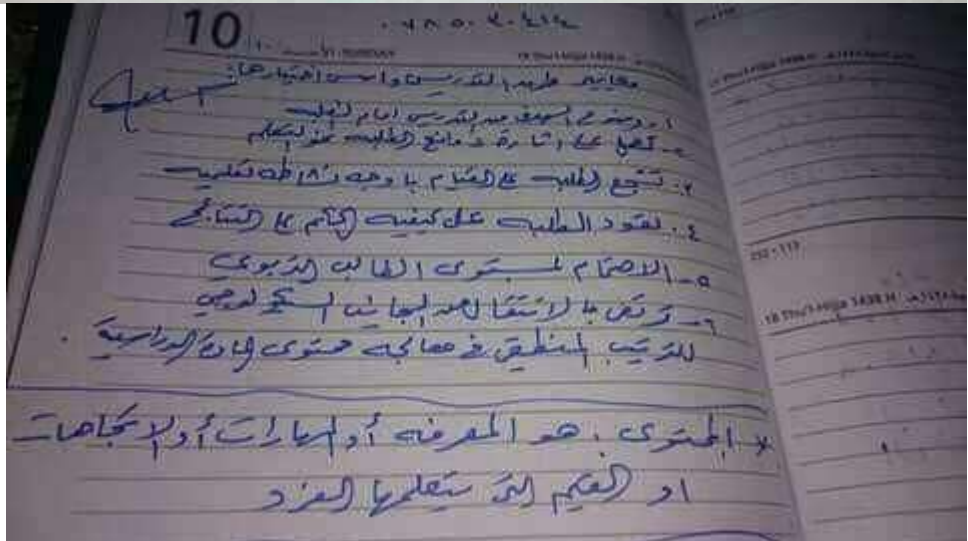 10
معايير طرق التدريس واسس اختيارها:
١- وضوح الهدف من التدريس امام الطلبه
٢- تعمل على اثارة دوافع الطلبه نحو التعلم
٣- تشجع الطلبه على القيام با وجه نشاط تعليميه
٤- تعود الطلبه على كيفيه الحكم على النتائج
٥- الاهتمام لمستوى الطالب التربوي
٦- تهتم بالانتقال من الجانب السيكولوجي
للترتيب المنطقي في معالجه محتوى المادة الدراسية.
* المحتوى: هو المعرفه أو المهارات أو الاتجاهات
او القيم التي يتعلمها الفرد